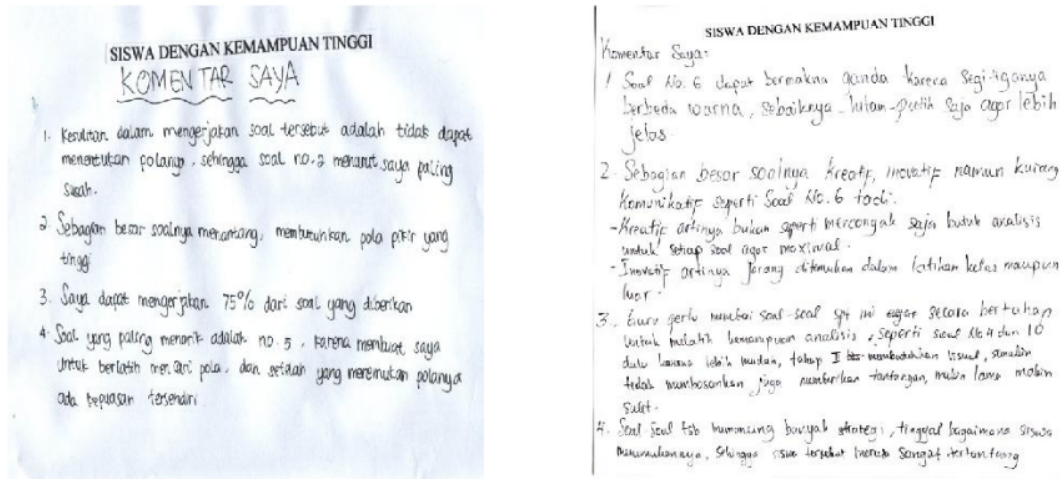 SISWA DENGAN KEMAMPUAN TINGGI
KOMENTAR SAYA
1. Kesulitan dalam mengerjakan soal tersebut adalah tidak dapat
menentukan polanya, sehingga soal no.2 menurut saya paling
susah.
2. Sebagian besar soalnya menantang, membutuhkan pola pikir yang
tinggi
3. Saya dapat mengerjakan 75% dari soal yang diberikan
4. Soal yang paling menarik adalah no. 5, karena membuat saya
untuk berlatih mencari pola, dan setelah yang menemukan polanya
ada kepuasan tersendiri
SISWA DENGAN KEMAMPUAN TINGGI
Komentar Saya:
1 Soal No. 6 dapat bermakna ganda karena segi-tiganya
berbeda warna, sebaiknya hitam-putih saja agar lebih
jelas.
2. Sebagian besar soalnya kreatif, inovatif namun kurang
komunikatif seperti Soal No. 6 tadi.
- Kreatif artinya bukan seperti mencongak saja butuh analisis
untuk setiap soal agar maximal.
- Inovatif artinya jarang ditemukan dalam latihan kelas maupun
luar.
3. Guru perlu memberi soal-soal spt ini agar secara bertahap
untuk melatih kemampuan analisis, seperti soal No 4 dan 10
dulu karena lebih mudah, tahap I visual, semakin
tidak membosankan juga memberikan tantangan, makin lama makin
sulit.
4. Soal-Soal tsb memancing banyak strategi, tinggal bagaimana siswa
menemukannya, sehingga siswa tersebut merasa sangat tertantang